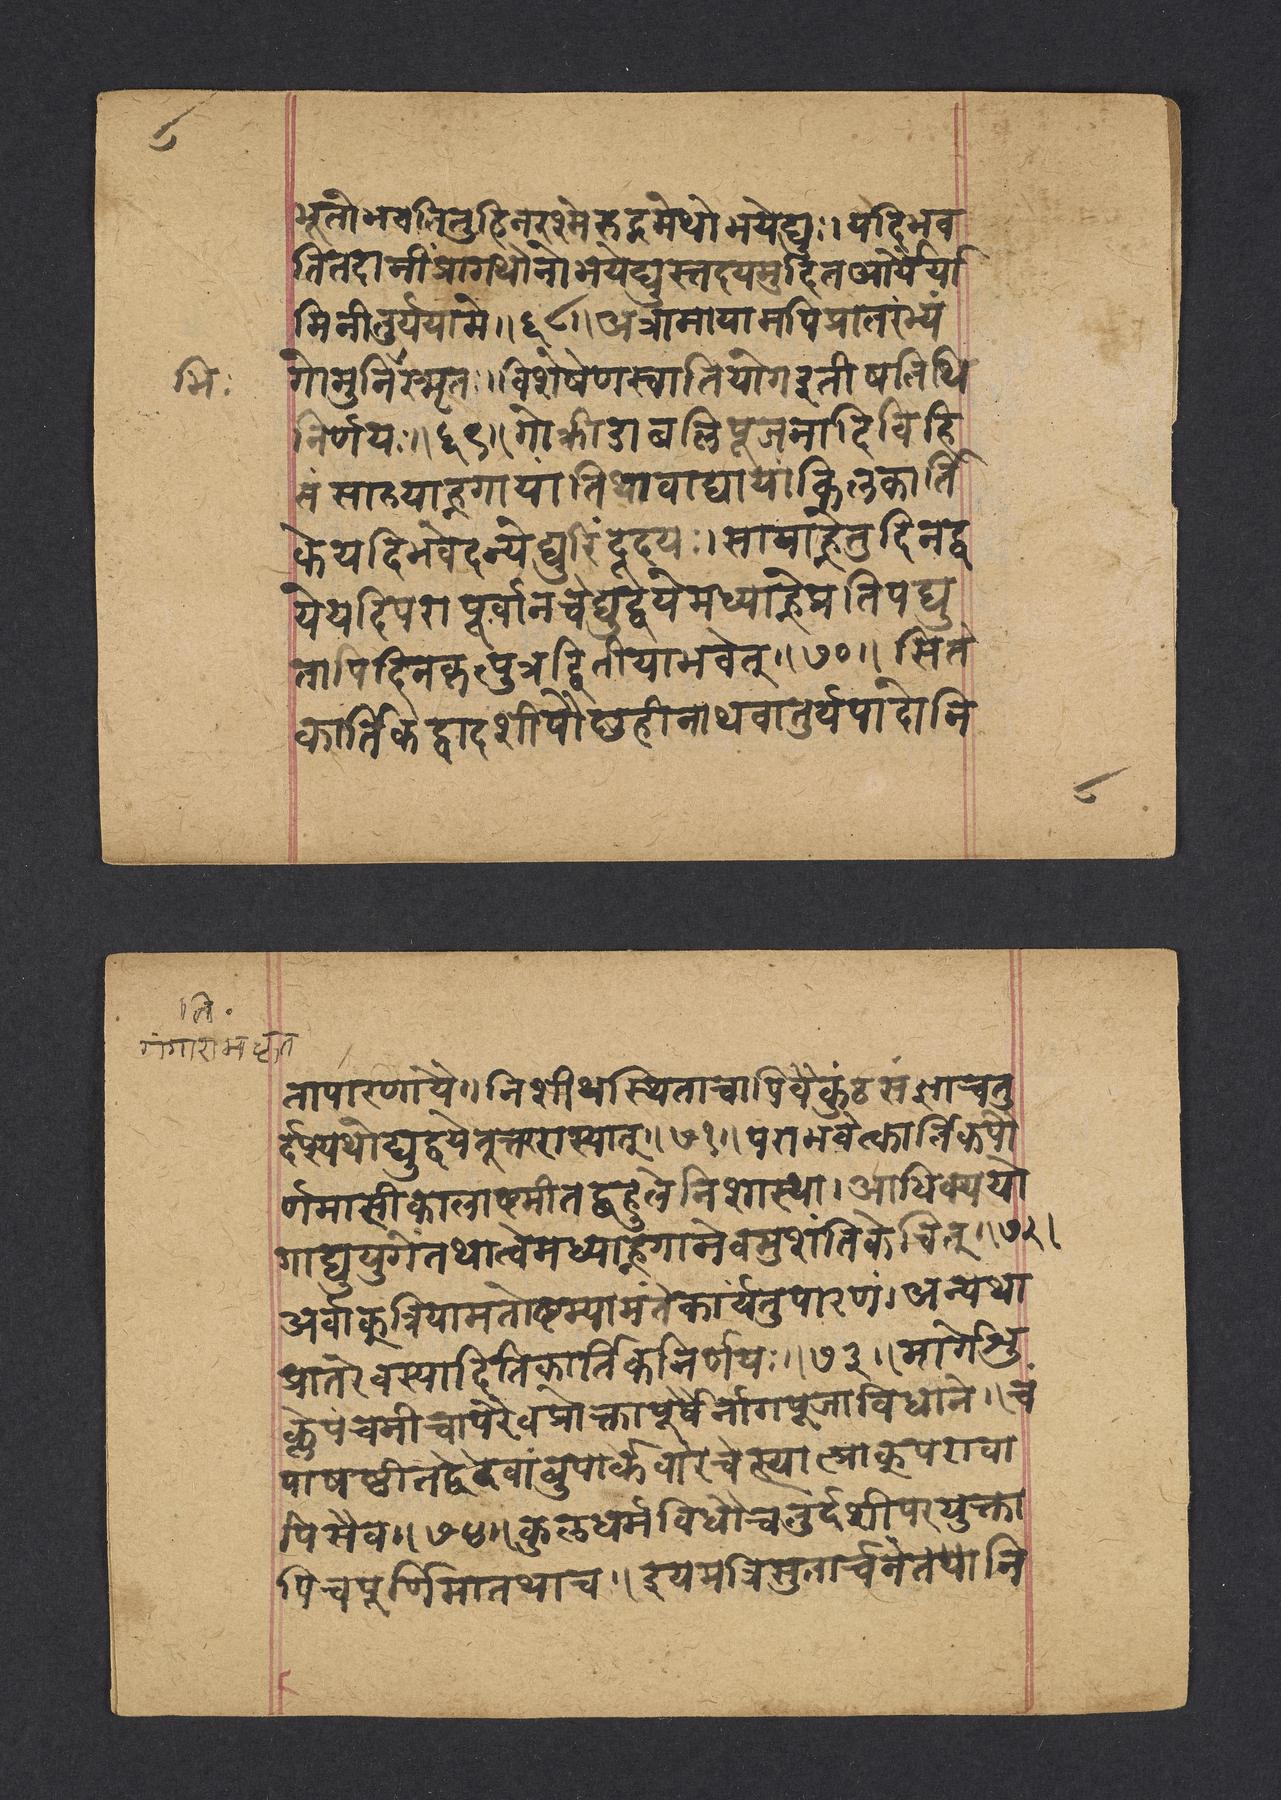 ८
भूतो भवति तुहिनरश्मेरुद्गमेथोभयेद्युः। यदि भव
ति तदानीं प्रागथो नोभयेद्युस्तदयमुदित आर्यैर्या
मिनीतुर्ययामे॥६८॥ अत्रामायामपि प्रातरभ्यं
ति.
गो मुनिस्मृतः॥ विशेषेण स्वातियोग इतीषतिथि
निर्णयः॥६९॥ गोक्रीडाबलिपूजनादि विहि
तं सारुयाह्नगायां तिथावाद्यायां किल कार्ति
के यदि भवेदन्येद्युरिंदूदयः। सायाह्ने तु दिनद्व
ये यदि परा पूर्वा न चेद्युर्द्वये मध्याह्ने प्रतिपद्यु
तापि दिनकृत्पुत्रद्वितीया भवेत्॥७०॥ सित
कार्तिकद्वादशी पौष्णहीनाथवा तुर्यपादोनि
८
ति.
गंगारामकृत
ता पारणायै॥ निशीथस्थिता चापि वैकुंठसंज्ञा चतु
र्दश्यथो द्युद्वये तूत्तरा स्यात्॥७१॥ परा भवेत्कार्तिकपौ
र्णमासी कालाष्टमी तद्बहुले निशास्था। आधिक्ययो
गाद्युयुगे तथात्वे मध्याह्नगामेवमुशंति केचित्॥७२।
अर्वाक् त्रियामतोष्टम्यामंते कार्यं तु पारणं। अन्यथा
प्रातरेव स्यादिति कार्तिकनिर्णयः॥७३॥ मार्गे शु
क्ले पंचमी चापरैव प्रोक्ता पूर्वैर्नागपूजाविधाने॥ चं
पाषष्ठी तद्वदेवांबुपार्कवारे चेत्स्यात्प्राक् परा वा
पि सैव॥७४॥ कुलधर्मविधौ चतुर्दशी परयुक्ता
पि च पूर्णिमा तथा च॥ इयमत्रिसुतार्चने तथा नि